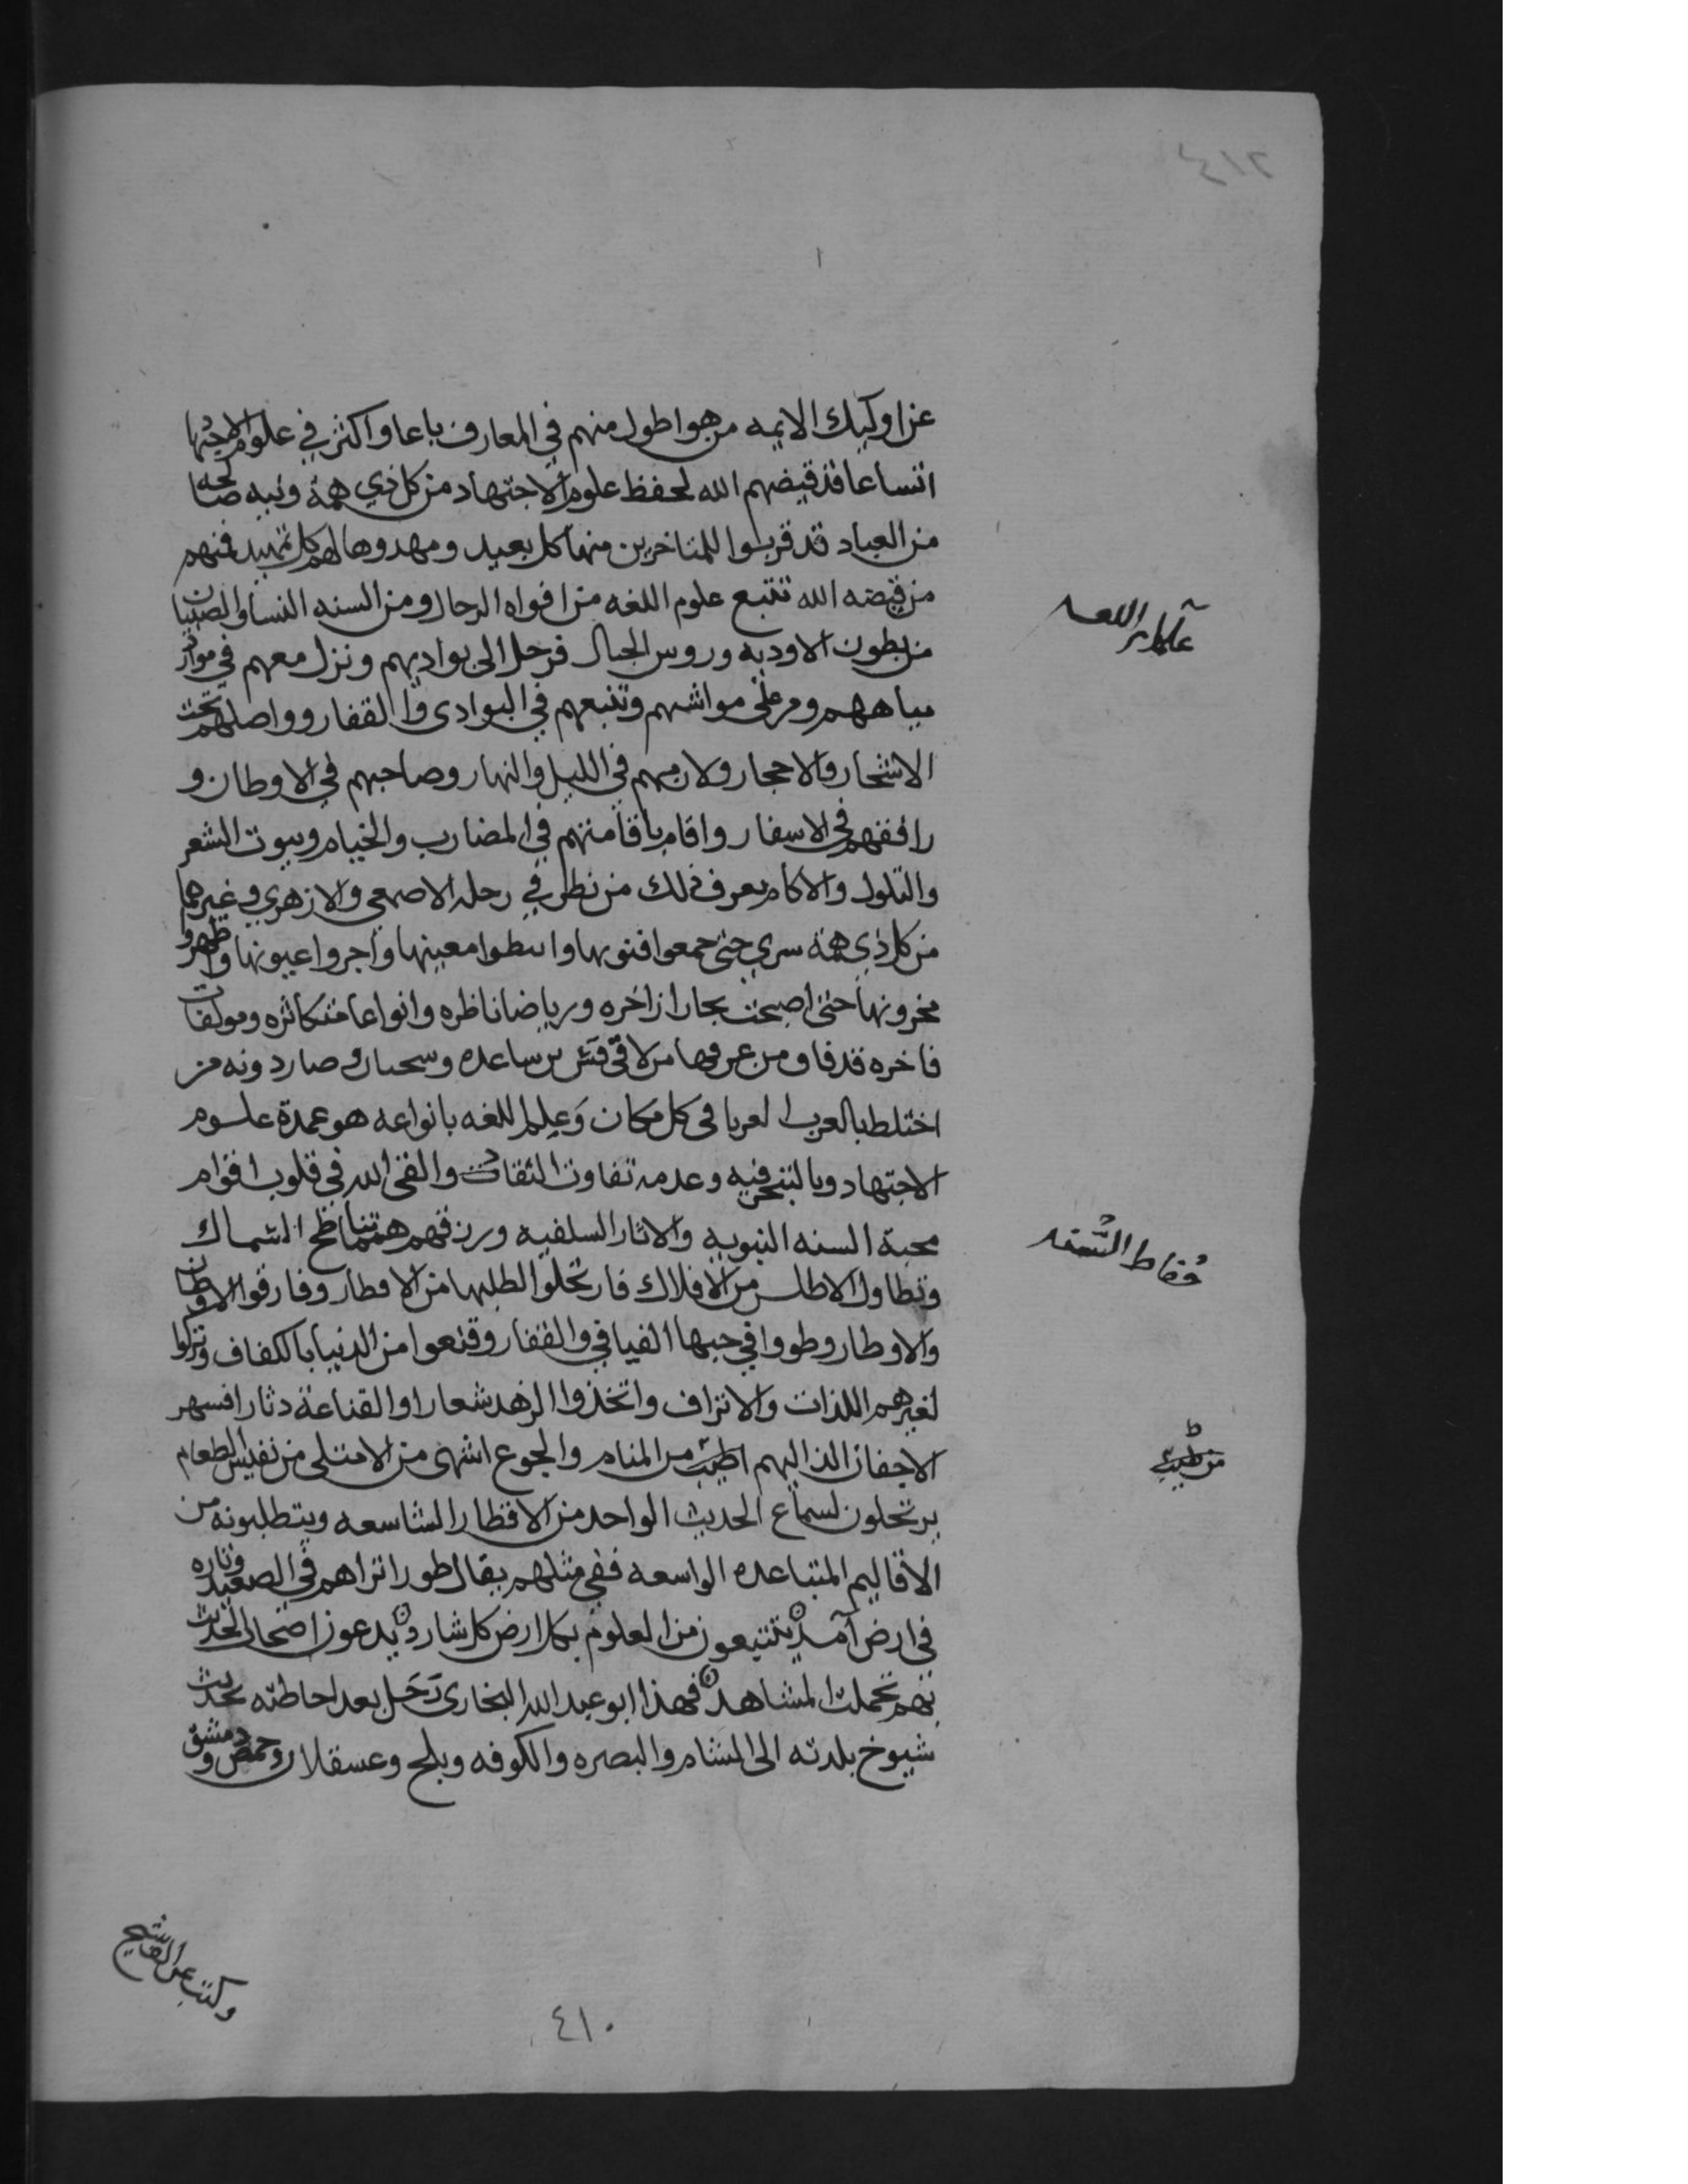 عن اوليك الايمه من هو اطول منهم في المعارف باعا واكثر في علوم الاجتهاد
اتساعا قد قيضهم الله لحفظ علوم الاجتهاد من كل ذي همة ونيه صالحه
من العباد قد قربوا للمتاخرين منها كل بعيد ومهدوها لهم كل تمهيد فمنهم
من قيضه الله تتبع علوم اللغه من افواه الرجال ومن السنه النسا والصبيان
من بطون الاوديه وروس الجبال فرحل الى بواديهم ونزل معهم في موارد
مياههم ومرعى مواشيهم وتتبعهم في البوادى والقفار وواصلهم تحت
الاشجار والاحجار ولازمهم في الليل والنهار وصاحبهم في الاوطان و
رافقهم في الاسفار واقام باقامتهم في المضارب والخيام وبيوت الشعر
والتلول والاكام يعرف ذلك من نظر في رحله الاصمعي والازهري وغيرهما
من كل ذي همة سري حتى جمعوا فنونها وانبطوا معينها واجروا عيونها واظهروا
مخزونها حتى اصبحت بحارا زاخره ورياضا ناظره وانواعا متكاثره ومولفات
فاخره قد فاق من عرفها من لاقى قس بن ساعده وسحبان وصار دونه من
اختلط بالعرب العربا في كل مكان وعلم اللغه بانواعه هو عمدة علوم
الاجتهاد وبالتبحر فيه وعدمه تفاوت الثقات والقى الله في قلوب اقوام
محبة السنه النبويه والاثار السلفيه ورزقهم همة تناطح السماك
وتطاول الاطلس من الافلاك فارتحلوا لطلبها من الاقطار وفارقوا الاوطان
والاوطار وطووا في حبها الفيافي والقفار وقنعوا من الدنيا بالكفاف وتركوا
لغيرهم اللذات والاتراف واتخذوا الزهد شعارا والقناعة دثارا فسهر
الاجفان الذ اليهم اطيب من المنام والجوع اشهى من الامتلى من نفيس الطعام
يرتحلون لسماع الحديث الواحد من الاقطار الشاسعه ويتطلبونه من
الاقاليم المتباعده الواسعه ففي مثلهم يقال طورا تراهم في الصعيد وتاره
في ارض آمد يتتبعون من العلوم بكل ارض كل شارد يدعون اصحاب الحديث
بهم تجملت المشاهد فهذا ابو عبد الله البخارى رحل بعد احاطته بحديث
شيوخ بلدته الى الشام والبصره والكوفه وبلخ وعسقلان وحمص ودمشق
علماء اللغه
حفاظ السنه
من طيب
وكتب عن الف شيخ
٤١٠